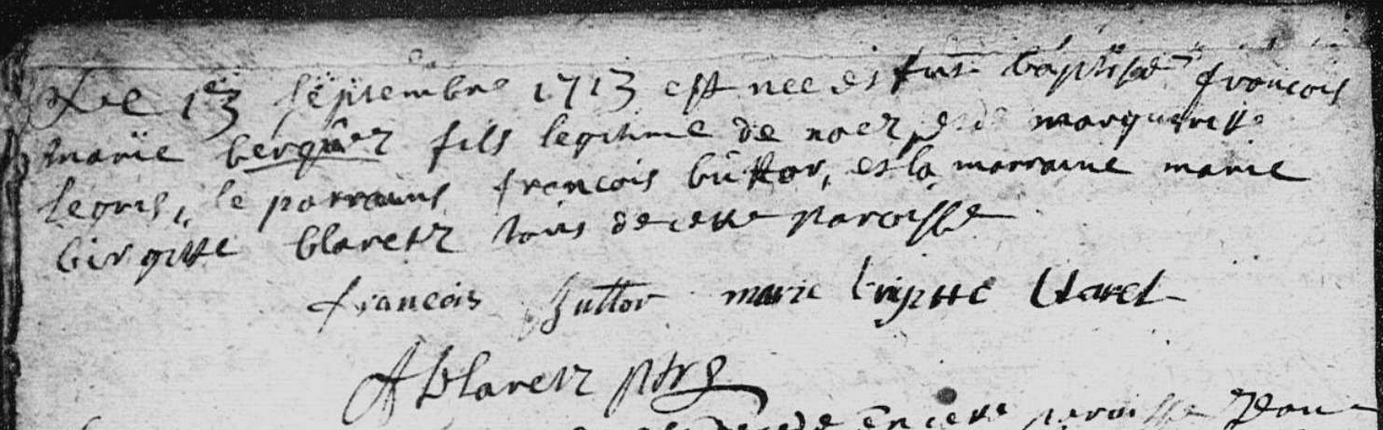 Le 13 septembre 1713 est nee et fut baptisé francois
marie berquez fils legitime de noez et de margueritte
legris, le parrains francois buttor, et la marraine marie
birgitte blaretz tous de cette paroisse
francois buttor marie brigitte blaret
A blaretz pbr
en cette paroisse Jean